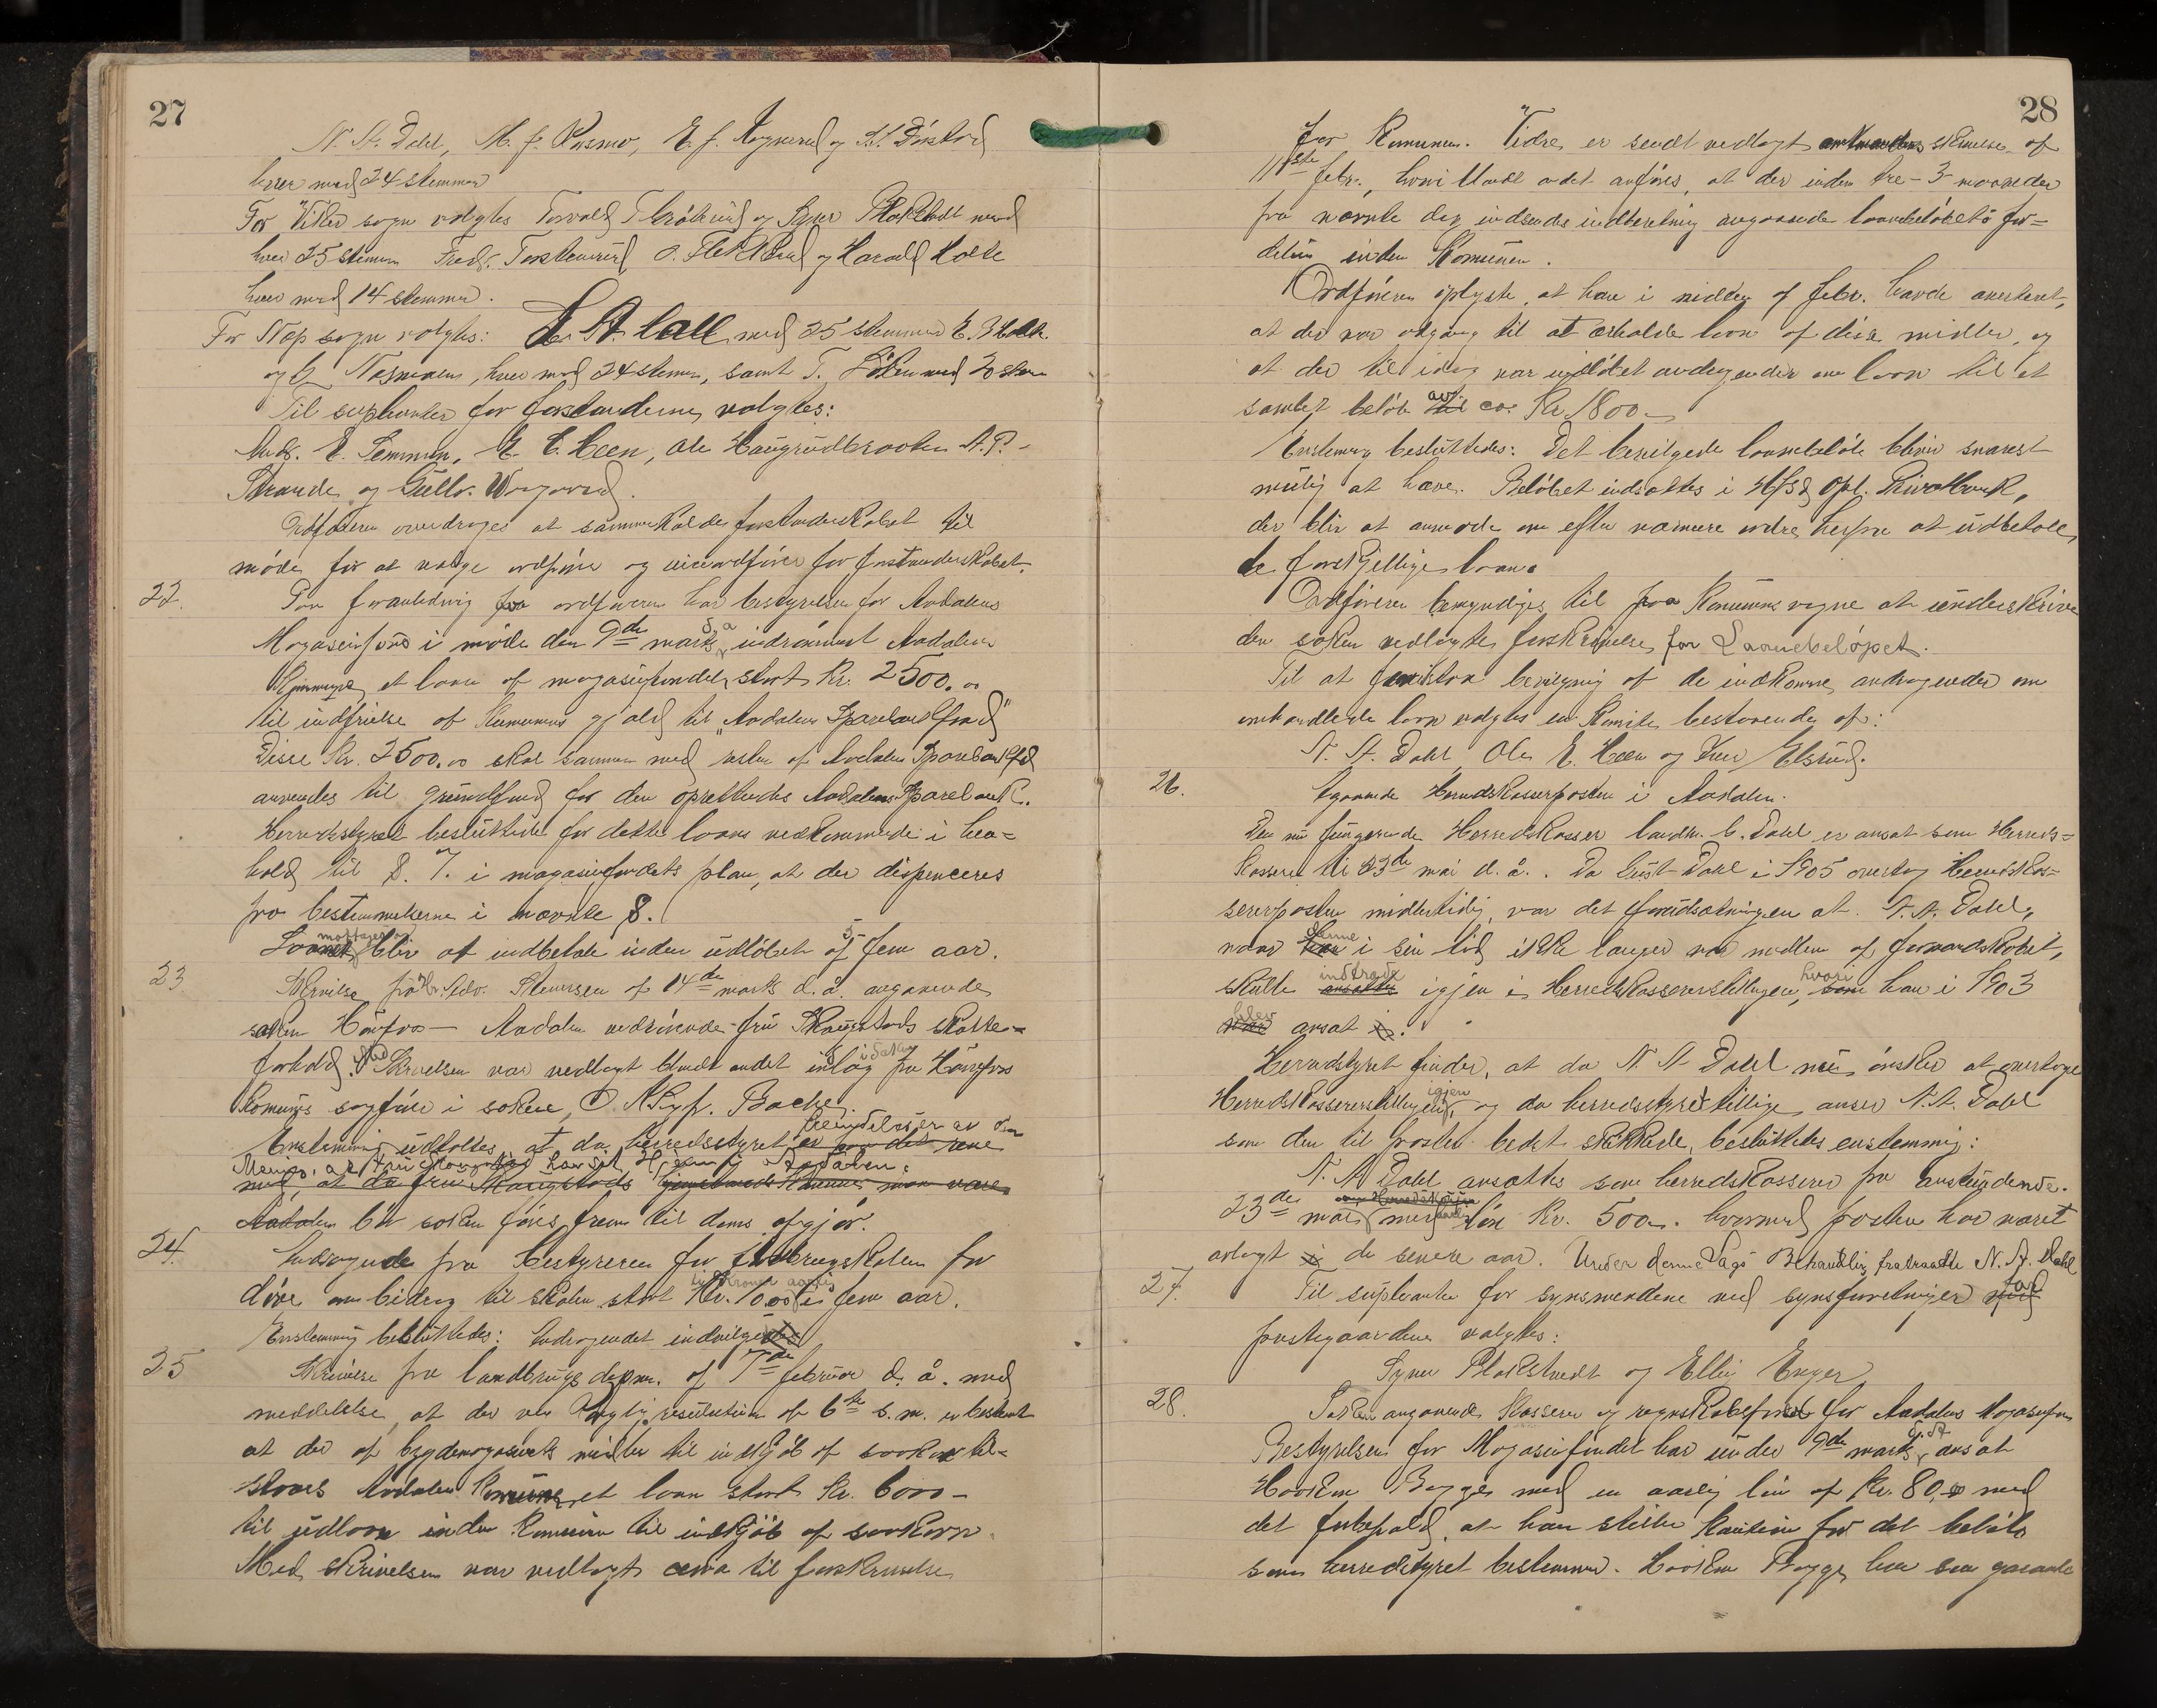 27
N. A. Dahl, M. J. Rosmo, E. J. og
hver med 24 stemmer
For Viker sogn valgtes Torvald og Syver Plokstvedt med
hver 25 stemmer Fredr. og Harald Holte
hver med 14 stemmer.
For Næs sogn valgtes: med 25 stemmer
og hver med 24 stemmer, samt T. med 20 stem
Til suplianter for forstanderne valgtes:
Ande. E. Semmen, E. E. Heen, Ole A. P.
Strande og Gullr.
Ordføreren overdrages at sammenkalde forstanderskabet til
møde for at vælge ordfører og viceordfører for forstanderskabet.
22. Paa foranledning fra ordføreren har bestyrelsen for Aadalens
Magasinfond i møde den 9de marts d. a indrømmet Aadalens
Kommune et laan af magasinfondet stort Kr. 2500.00
til indfrielse af Kommunens gjæld til "Aadalens Sparebankfond"
Disse Kr. 2500.00 skal sammen med resten af Aadalens Sparebankfd
anvendes til grundfond for den oprettendes Aadalens Sparebank.
Herredsstyret besluttede for dette laans vedkommende i hen=
hold til §. 7. i magasinfondets plan, at der dispenceres
fra bestemmelserne i nævnte §.
Laanet mottages og blir at indbetale inden udløbet af 5 fem aar.
23 Skrivelse fra Hr. Adv. Steenersen af 14de marts d. å. angaaende
saken Hønefos — Aadalen vedrørende fru Skougstads skatte=
forhold. Med Skrivelsen var vedlagt blandt andet indlæg i saken fra Hønefos
Komunes sagfører i saken, O. R. Kyp. Bache.
Enstemmig udtaltes at da herredsstyret er fremdeles er av den
Mening, at fru Skougstad har sit Hjem i Aadalen,
med, at da fru Skaugstads hjemstavnskommune maa være
Aadalen bør saken føres frem til doms afgjør.
24. Andragende fra Bestyreren for Industriskolen for
døve om bidrag til skolen stort Kr. 10.00 ti Kroner aarlig i fem aar.
Enstemmig besluttedes: Andragendet indvilges
25 Skrivelse fra landbrugs depm. af 7de februar d. å. med
meddelelse, at der ved Kongelig resulution af 6te s. m. er bestemt
at der af bygdemagasinets midler til indkjøb af saakorn til=
staaes Aadalens Komune et laan stort Kr. 6000 —
til udlaan inden Komunen til indkjøb af saakorn.
Med skrivelsen var vedlagt til forskrivelse
28
for Komunen. Videre er sendt vedlagt amtmandens skrivelse af
11te febr., hvori blandt andet anføres, at der inden tre — 3 — maaneder
fra nævnte dag indsendes indberetning angaaende laanebeløbets for=
deling inden Komunen.
Ordføreren oplyste, at han i midten af febr. havde averteret,
at der var adgang til at erholde laan af disse midler, og
at der til idag var indløbet andragender om laan til et
samlet beløb av ca. Kr. 1800 —
Enstemmig besluttedes: Det bevilgede laanebeløb bliver snarest
mulig at hæve. Beløbet indsættes i Opl. Privatbank,
der blir at anmode om efter nærmere ordre herfra at udbetale
de forskjellige laan.
Ordføreren bemyndiges til paa Komunens vegne at underskrive
den saken vedlagte forskrivelse for Laanebeløpet.
Til at foreta bevilgning af de indkomne andragender om
omhandlede laan valgtes en Komite bestaaende af:
N. A. Dahl, Ole E. Heen og Iver Elsrud.
26. Agaaende Herredskasserposten i Aadalen.
Den nu fungerende Herredskasser landm. C. Dahl er ansat som Herreds=
kasserer til 23de mai d. å. . Da Gust Dahl i 1905 overtog Herredskas=
sererposten midlertidig, var det forudsætningen at N. A. Dahl,
naar han denne i sin tid ikke længer var medlem af formandskabet,
skulle ansættes indtræde igjen i Herredskassererstillingen, som hvori han i 1903
var blev ansat i.
Herredstyret finder, at da N. A. Dahl nu ønsker at overtage
Herredskassererstillingen igjen, og da herredsstyret tillige anser N. A. Dahl
som den til posten bedst skikkede, besluttedes enstemmig:
N. A. Dahl ansættes som herredskasserer fra anstundende
23de mai med løn Kr. 500.–. hvormed posten har været
avlagt i de senere aar. Under denne Sags Behandling fratraadte N. A. Dahl
27. Til suplianter for synsmendene ved synsforretninger ved for
prestegaardene valgtes:
Syver Plokstvedt og Elling Enger
28. Saken angaaende Kasserer og regnskabsfører for Aadalens Magasinfon
Bestyrelsen for Magasinfondet har under 9de marts d. å. ansat
Haakon Bogge med en aarlig løn af Kr. 80,00 med
det forbehold, at han stiller Kaution for det beløb
som herredstyret bestemmer. Haakon Bogge har som garante